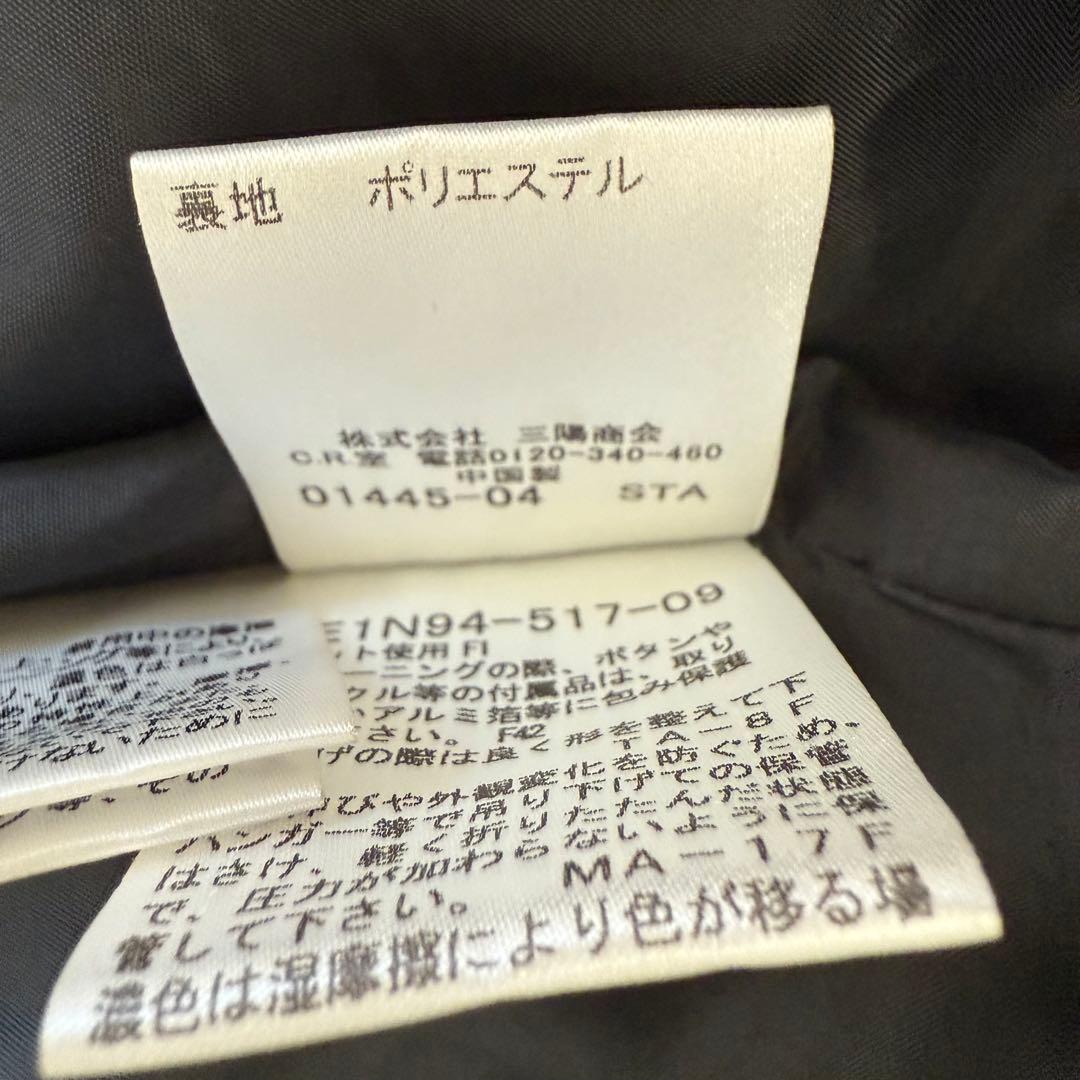 裏地 ポリエステル
株式会社 三陽商会
C.R.室 電話0120-340-460
中国製
01445-04 STA
1N94-517-09
ット使用 FI
ーニングの際、ボタンや
クル等の付属品は、取り
いアルミ箔等に包み保護
さい。 F42
げの際は良く形を整えて下
TA-8F
びや外観変化を防ぐため、
ハンガー等で吊り下げての保管
はさけ、軽く折りたたんだ状態
で、圧力が加わらないように保
管して下さい。 MA-17F
濃色は湿摩擦により色が移る場